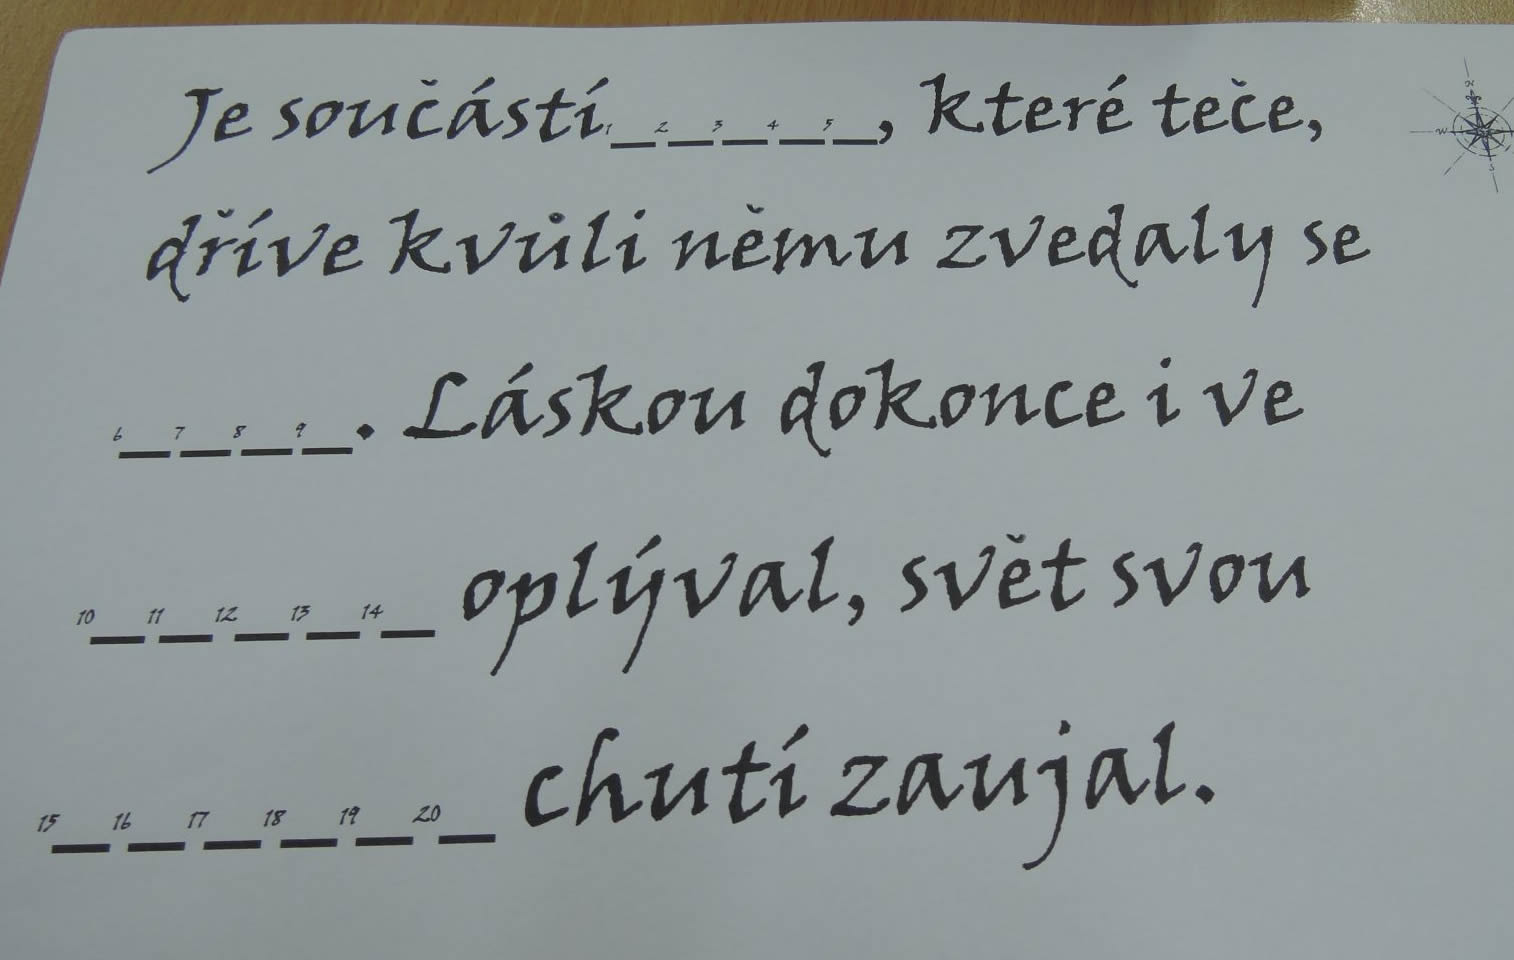 Je součástí 1_ 2_ 3_ 4_ 5_, které teče,
dříve kvůli němu zvedaly se
6_ 7_ 8_ 9_. Láskou dokonce i ve
10_ 11_ 12_ 13_ 14_ oplýval, svět svou
15_ 16_ 17_ 18_ 19_ 20_ chutí zaujal.